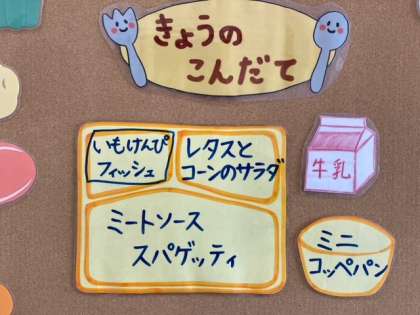 きょうの
こんだて
いもけんぴ
フィッシュ
レタスと
コーンのサラダ
牛乳
ミートソース
スパゲッティ
ミニ
コッペパン